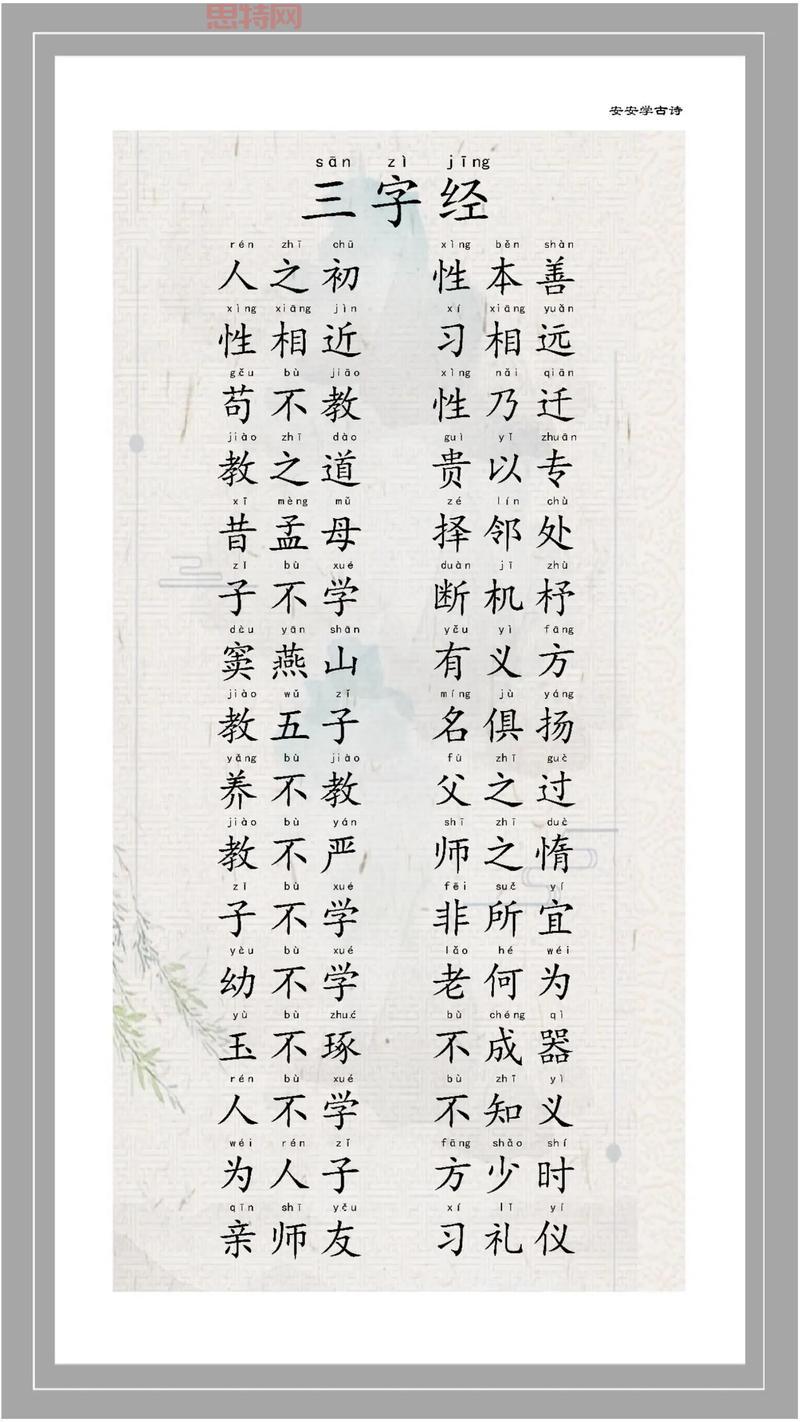 思特网
安安学古诗
sān zì jīng
三字经
rén zhī chū xìng běn shàn
人之初 性本善
xìng xiāng jìn xí xiāng yuǎn
性相近 习相远
gǒu bù jiāo xìng nǎi qiān
苟不教 性乃迁
jiào zhī dào guì yǐ zhuān
教之道 贵以专
xī mèng mǔ zé lín chù
昔孟母 择邻处
zǐ bù xué duàn jī zhù
子不学 断机杼
dòu yān shān yǒu yì fāng
窦燕山 有义方
jiào wǔ zǐ míng jù yáng
教五子 名俱扬
yǎng bù jiào fù zhī guò
养不教 父之过
jiào bù yán shī zhī duò
教不严 师之惰
zǐ bù xué fēi suǒ yí
子不学 非所宜
yòu bù xué lǎo hé wéi
幼不学 老何为
yù bù zhuó bù chéng qì
玉不琢 不成器
rén bù xué bù zhī yì
人不学 不知义
wéi rén zǐ fāng shào shí
为人子 方少时
qīn shī yǒu xí lǐ yí
亲师友 习礼仪